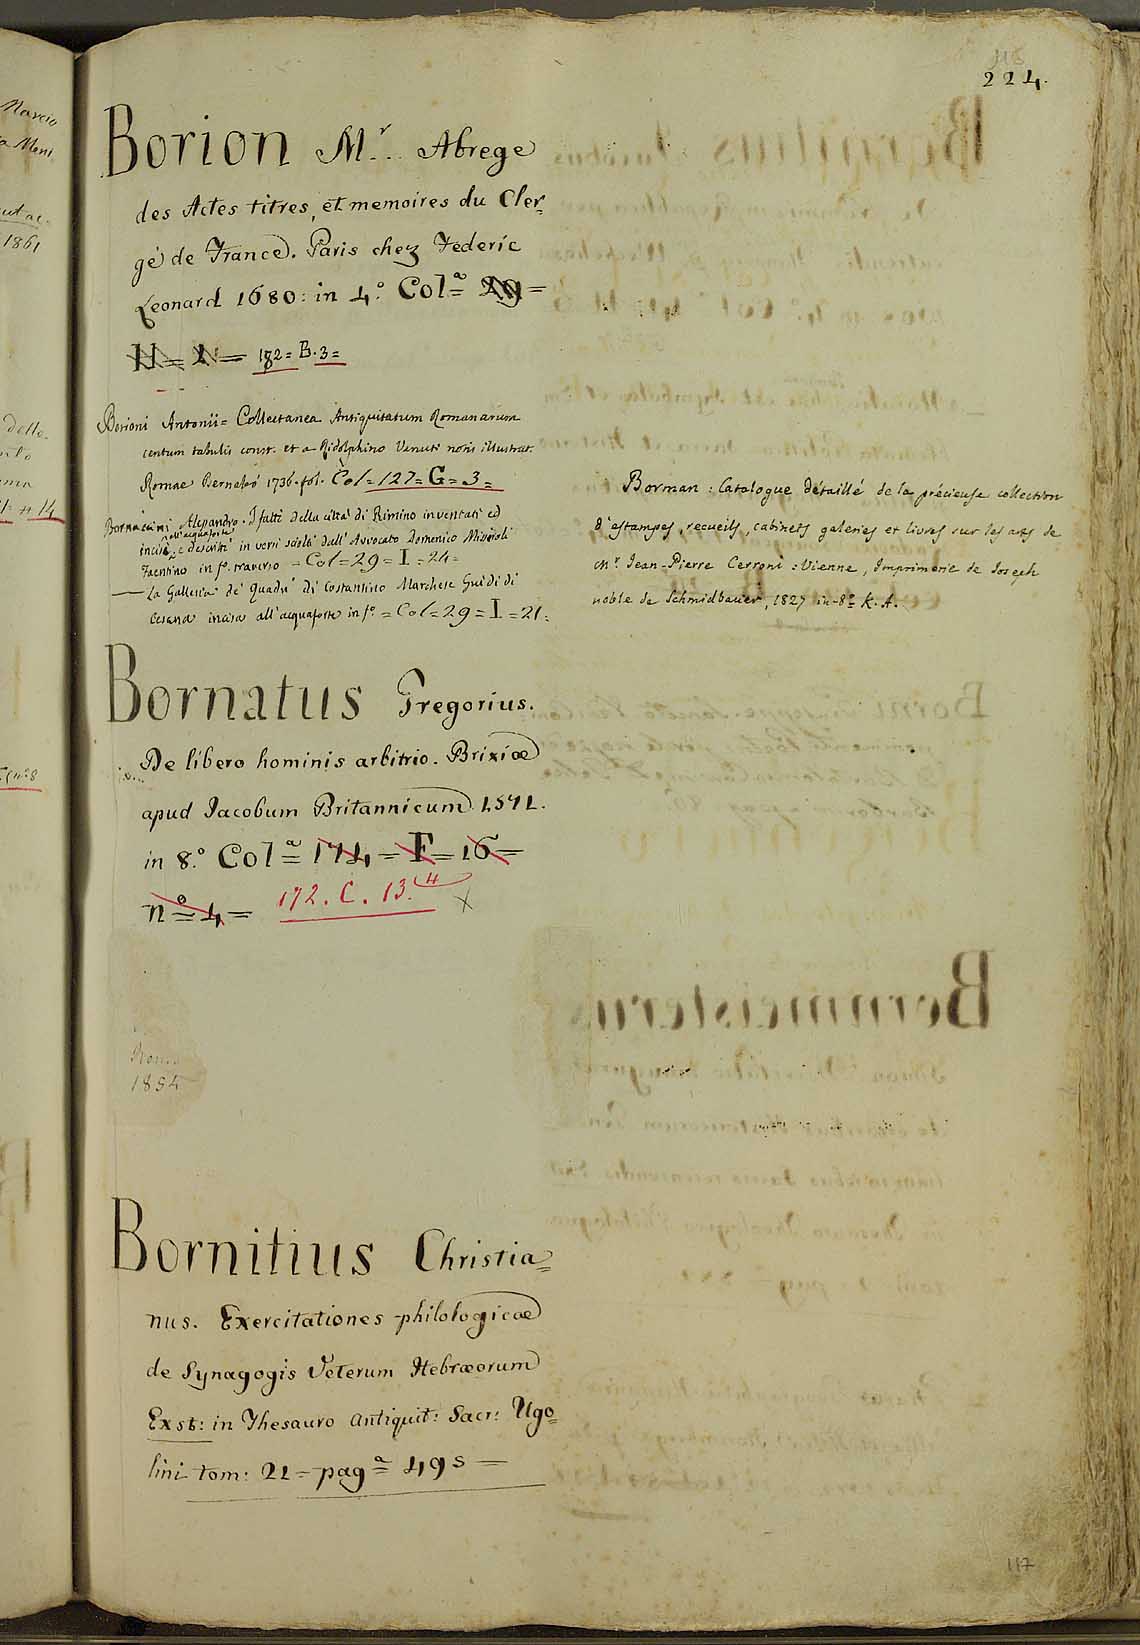 224.
Borion Mr. Abrege
des Actes titres, et memoires du Cler=
gé de France. Paris chez Federic
Leonard 1680: in 4.o Col.a = 29 =
II = I = 172 = B. 3 =
Borioni Antonii = Collectanea Antiquitatum Romanarum
centum tabulis const. et a Ridolphino Venuti notis illustrat.
Romae Bernabò 1736. fol. Col = 127 = G = 3 =
Bornaccini Alessandro. I fatti della città di Rimino inventati ed
incisi all'acquaforte e descritti in versi sciolti dall' Avvocato Domenico
Faentino in fo. traverso = Col = 29 = I = 24 =
— La Galleria de' Quadri di Costantino Marchese Guidi di
Cesena incisa all'acquaforte in fo. = Col = 29 = I = 21 =
Bornatus Gregorius.
De libero hominis arbitrio. Brixiæ
apud Iacobum Britannicum 1571.
in 8.o Col.a = 174 = F = 16 =
n.o = 4 = 172. C. 13. 4 X
1854
Bornitius Christia=
nus. Exercitationes philologicæ
de Synagogis Veterum Hebræorum
Exst: in Thesauro Antiquit: Sacr: Ugo=
lini tom: 21 = pag.a = 495 —
Borman: Catalogue détaillé de la précieuse collection
d'estampes, recueils, cabinets galeries et livres sur les arts de
Mr. Jean-Pierre Cerroni: Vienne, Imprimerie de Joseph
noble de Schmidbauer, 1827 in-8.o K. A.
117
Marcio
1861
delle